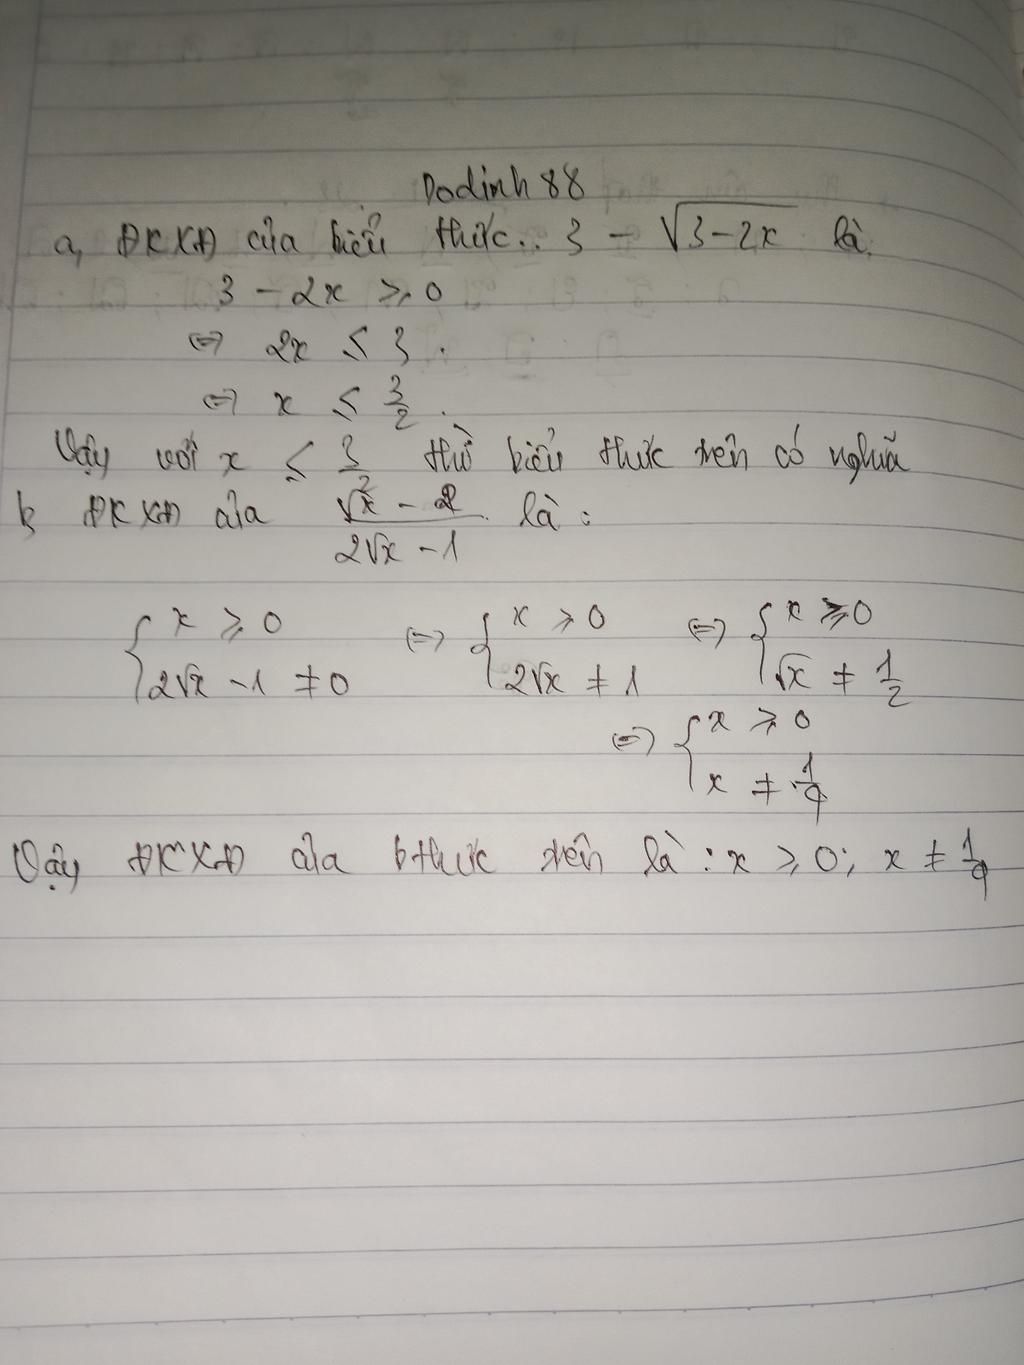 Dodinh 88
a, ĐKXĐ của biểu thức.. 3 - √3-2x là.
3 - 2x ≥ 0
⇔ 2x ≤ 3.
⇔ x ≤ 3/2.
Vậy với x ≤ 3/2 thì biểu thức trên có nghĩa
b ĐKXĐ của (√x - 2)/(2√x - 1) là:
{ x ≥ 0 ⇔ { x ≥ 0 ⇔ { x ≥ 0
2√x - 1 ≠ 0 2√x ≠ 1 √x ≠ 1/2
⇔ { x ≥ 0
x ≠ 1/4
Vậy ĐKXĐ của bthức trên là: x ≥ 0; x ≠ 1/4